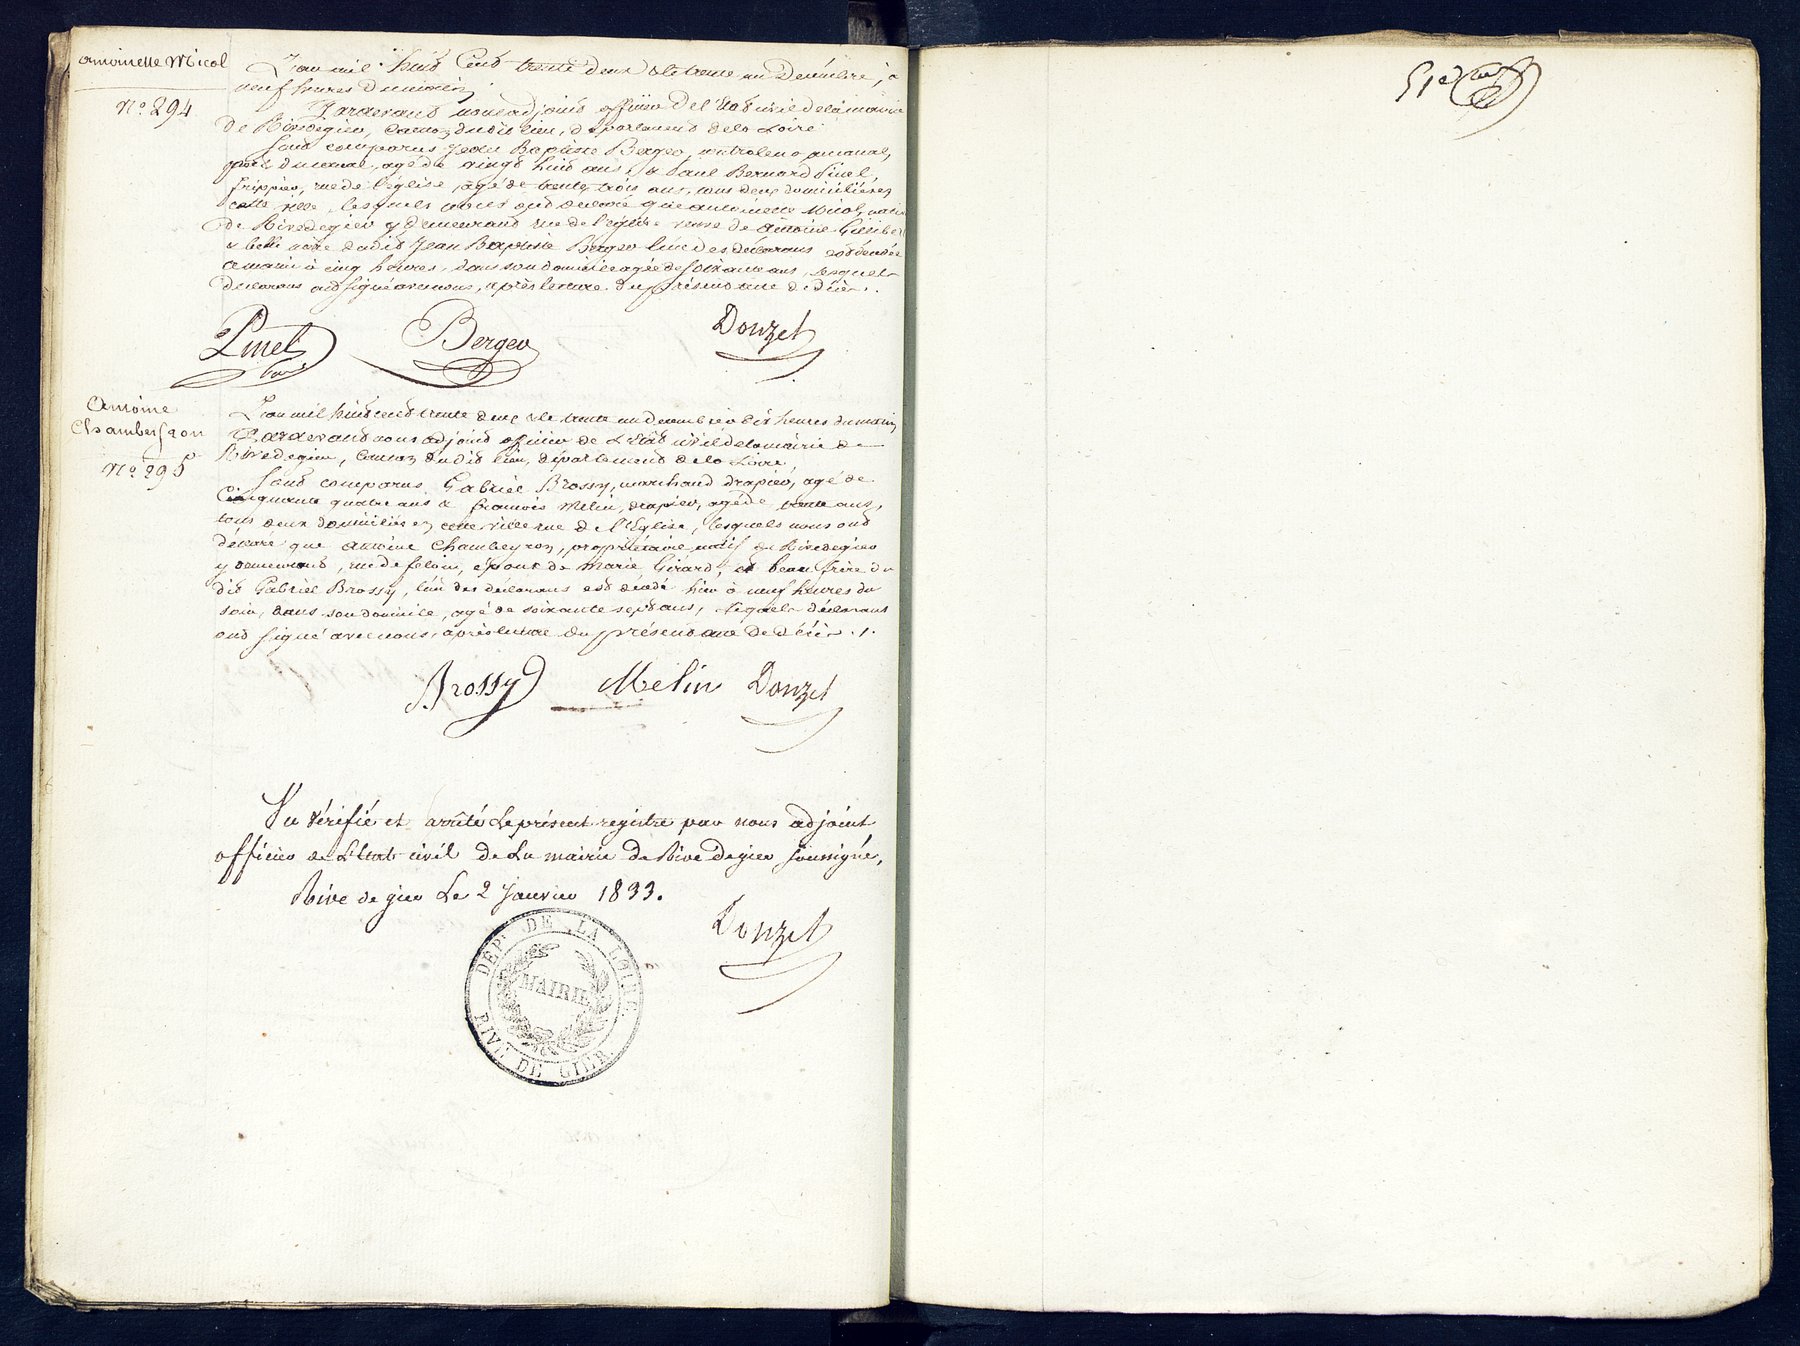 antoinette Micol
N° 294
L'an mil huit Cent trente deux & le trente un Décembre, à
neuf heures du matin,
Pardevant nous adjoint officier de l'état civil de la mairie
de Rivedegier, Canton dudit lieu, département de la Loire
Sont comparus Jean Baptiste Berger, au canal,
agé de vingt huit ans, & Paul Bernard Pinel,
frippier, rue de l'église, agé de trente trois ans, tous deux domiciliés en
cette ville, lesquels nous ont déclaré que antoinette Micol, native
de Rivedegier y demeurant rue de l'église veuve de Antoine
& belle mère dudit Jean Baptiste Berger l'un des déclarans est décédée
ce matin à cinq heures, dans son domicile agée de soixante ans, lesquels
déclarans ont signé avec nous, après lecture du présent acte de décès.
Pinel
Berger
Donzel
Antoine
Chambeyron
N° 295
L'an mil huit cent trente deux & le trente un decembre à dix heures du matin
Pardevant nous adjoint officier de l'état civil de la mairie de
Rivedegier, Canton dudit lieu, département de la Loire,
Sont comparus Gabriel Brossy, marchand drapier, agé de
Cinquante quatre ans & francois Melin, drapier, agé de trente ans,
tous deux domiciliés en cette ville rue de l'Eglise, lesquels nous ont
déclaré que antoine Chambeyron, propriétaire natif de Rivedegier
y demeurant, rue de féloin, époux de Marie Girard, et beau frère du
dit Gabriel Brossy, l'un des déclarans est décédé hier à neuf heures du
soir, dans son domicile, agé de soixante sept ans, lesquels déclarans
ont signé avec nous, après lecture du présent acte de décès ./.
Brossy
Melin
Donzel
Vu vérifié et arrêté le présent registre par nous adjoint
officier de l'Etat civil de la mairie de Rive de gier soussigné,
Rive de gier Le 2 Janvier 1833.
Donzel
DEPt DE LA LOIRE
MAIRIE
RIVE DE GIER